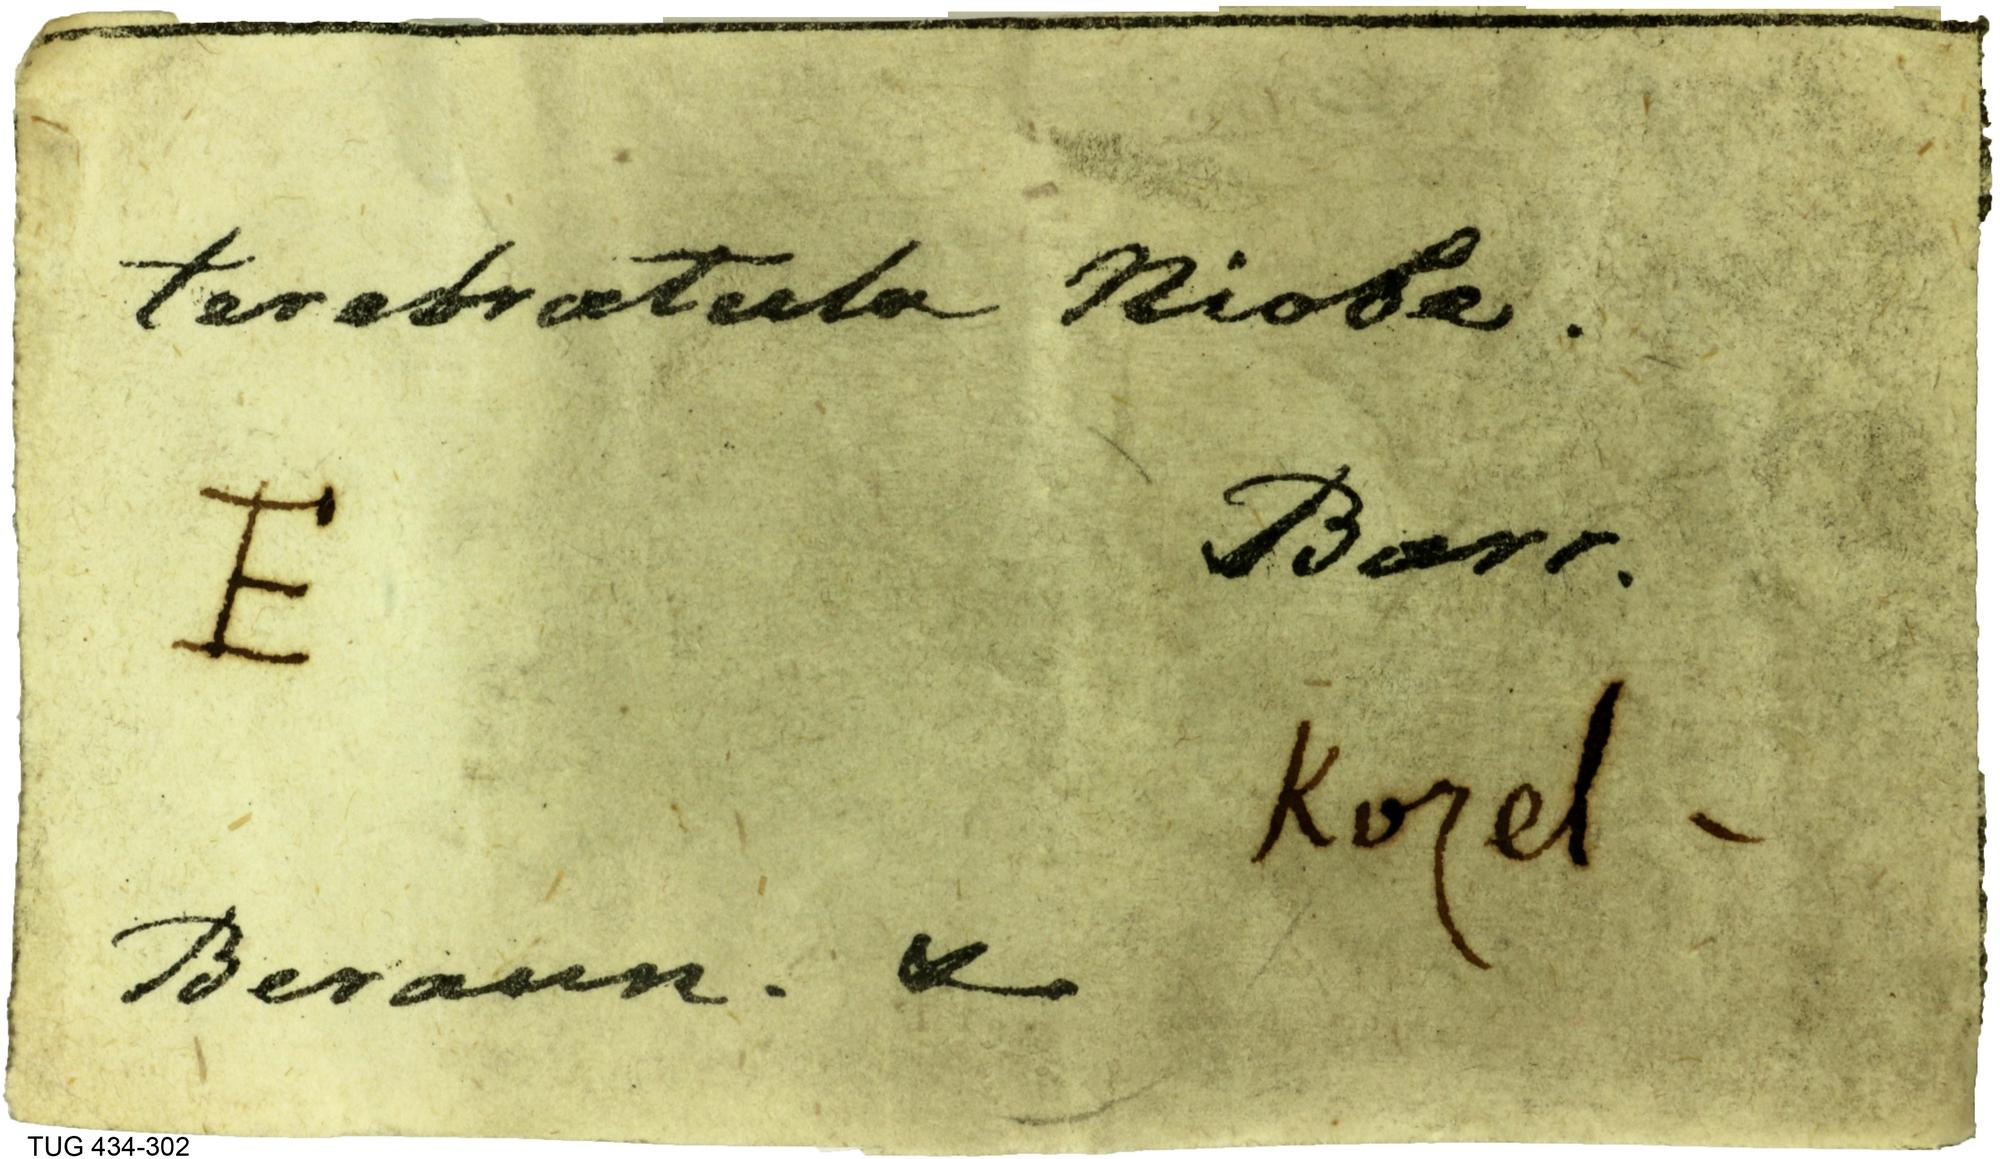 terebratula Niobe.
E
Barr.
Kozel -
Beraun. K.
TUG 434-302